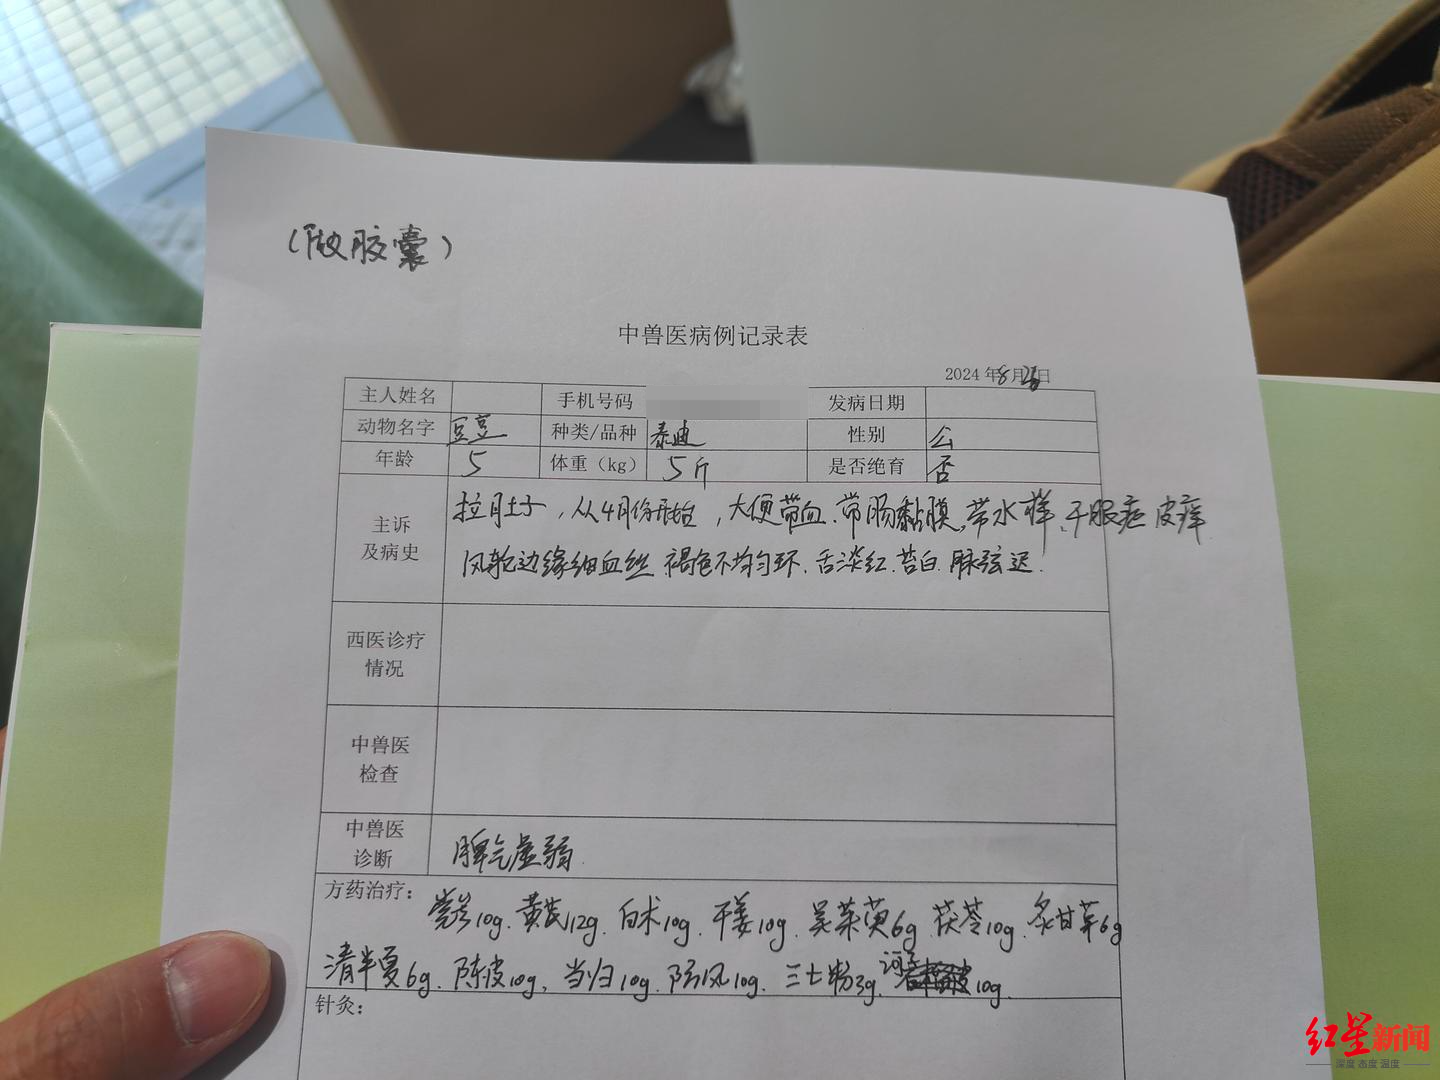 (做胶囊)
中兽医病例记录表
2024年8月28日
主人姓名 手机号码 发病日期
动物名字 豆豆 种类/品种 泰迪 性别 公
年龄 5 体重（kg） 5斤 是否绝育 否
主诉及病史
拉肚子，从4月份开始，大便带血、带肠黏膜、带水样、干眼症 皮痒
风轮边缘细血丝 褐色不均匀环、舌淡红、苔白、脉弦迟.
西医诊疗情况
中兽医检查
中兽医诊断 脾气虚弱
方药治疗：
党参10g、黄芪12g、白术10g、干姜10g、吴茱萸6g、茯苓10g、炙甘草6g
清半夏6g、陈皮10g、当归10g、防风10g、三七粉3g、诃子10g.
针灸：
红星新闻
深度 态度 温度